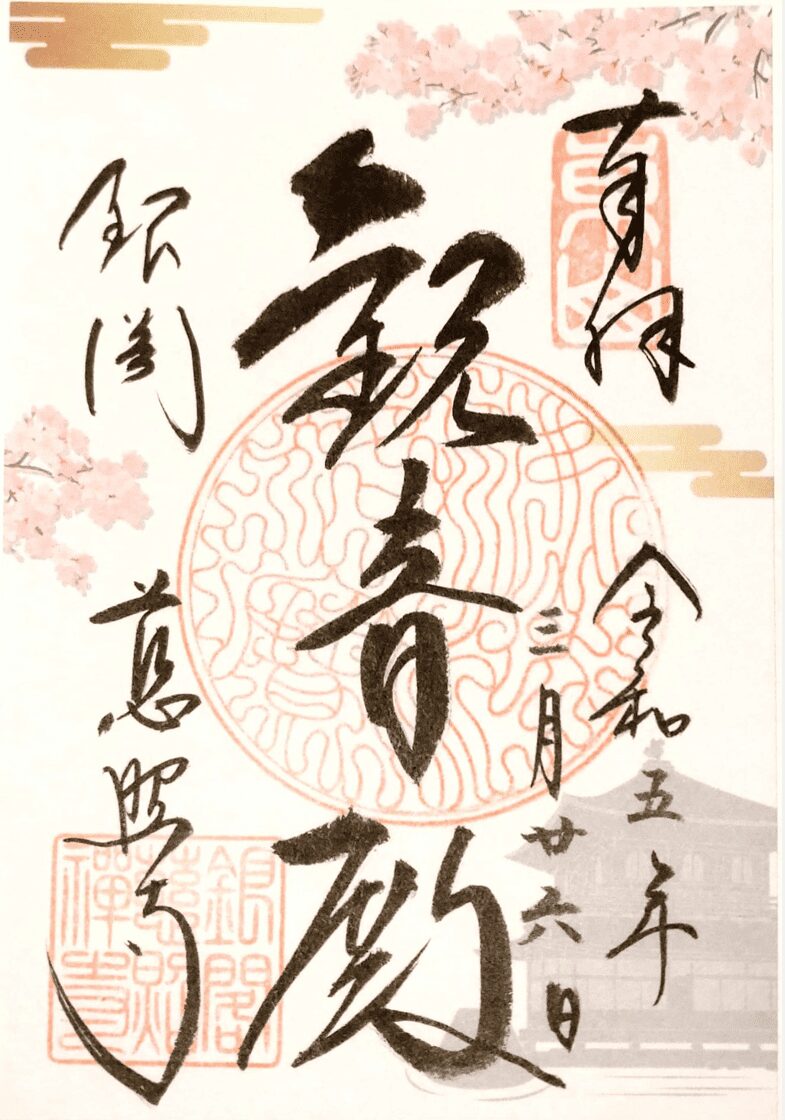 奉拝
令和五年
三月廿六日
観音殿
銀閣
慈照寺
銀閣
慈照
禪寺